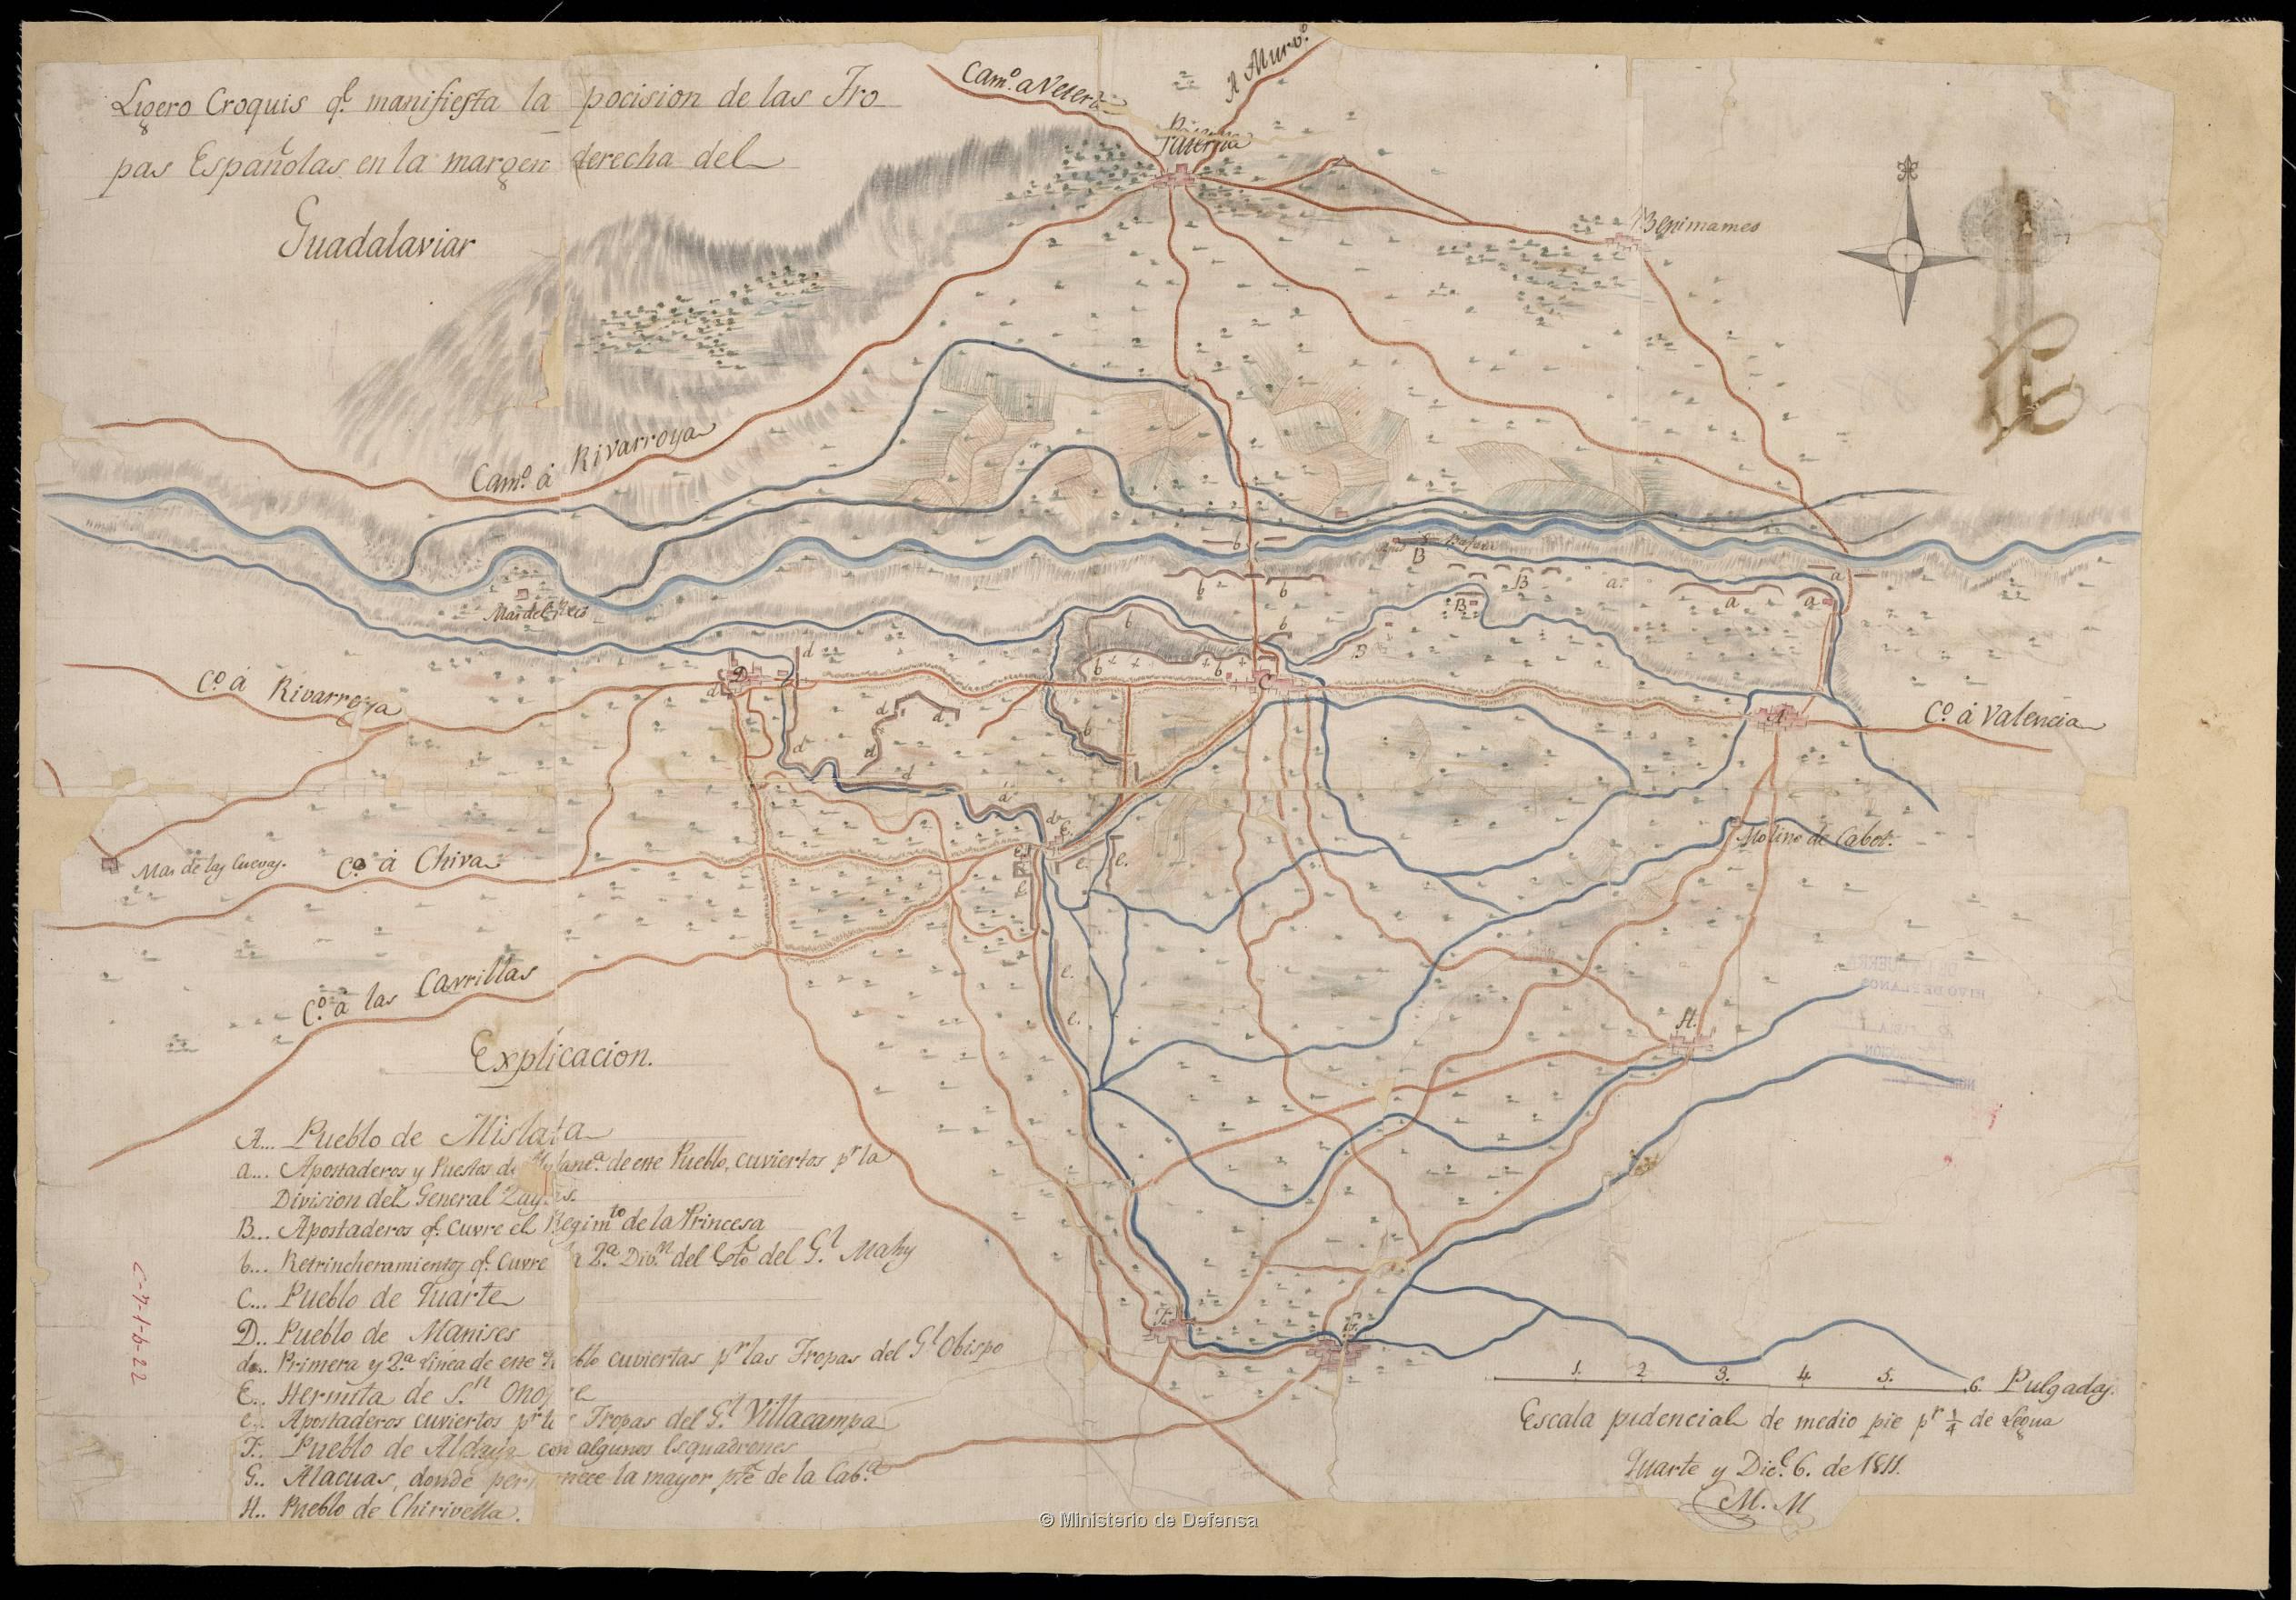 Ligero Croquis qe. manifiesta la pocision de las Tro
pas Españolas en la margen derecha del
Guadalaviar
Camo. a
A Murvo.
Paterna
Benimames
Camo. á Rivarroya
Mas del
B
B
B
B
a.
a
a
a
b
b
b
b
b
b
b
b
b
C
D
d
d
d
d
d
d
d
d
d
A
Co. á Rivarroya
Co. á Valencia
Mas de las Cuevas.
Co. á Chiva
E.
e.
e.
e.
e.
e.
e.
Molino de Cabot.
Co. á las Cavrillas
H.
F.
G.
Explicacion.
A... Pueblo de Mislata
a... Apostaderos y Puestos de de este Pueblo, cuviertos pr la
Division del General Zayas.
B... Apostaderos qe. cuvre el Regimto de la Princesa
b... Retrincheramientos qe. cuvre la 2a. Divn. del del Gl. Mahy
C... Pueblo de Quarte
D.. Pueblo de Manises
d... Primera y 2a. linea de este Pueblo cuviertas pr las Tropas del Gl Obispo
E.. Hermita de Sn. Onofre
e.. Apostaderos cuviertos pr las Tropas del Gl. Villacampa
F.. Pueblo de Aldaya con algunos Esquadrones
G.. Alacuas, donde permanece la mayor pte de la Caba.
H.. Pueblo de Chirivella.
1. 2. 3. 4. 5. 6. Pulgadas.
Escala de medio pie pr 1/4 de Legua
Quarte y Dice. 6. de 1811.
M. M
C-7-1-6-22
© Ministerio de Defensa